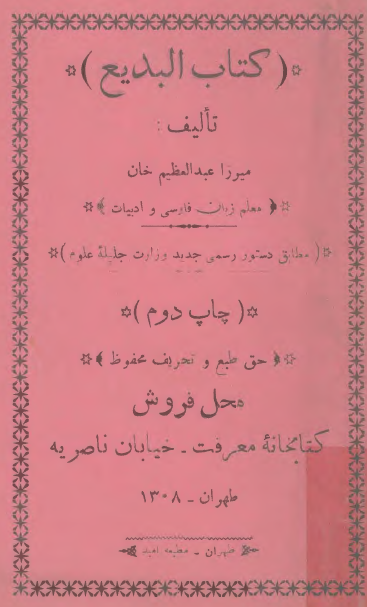 (كتاب البديع)
تأليف :
ميرزا عبدالعظيم خان
﴿ معلم زبان فارسى و ادبيات ﴾
( مطابق دستور رسمى جديد وزارت جليلهٔ علوم )
( چاپ دوم )
﴿ حق طبع و تحريف محفوظ ﴾
محل فروش
كتابخانهٔ معرفت ـ خيابان ناصريه
طهران ـ ۱۳۰۸
طهران ـ مطبعه